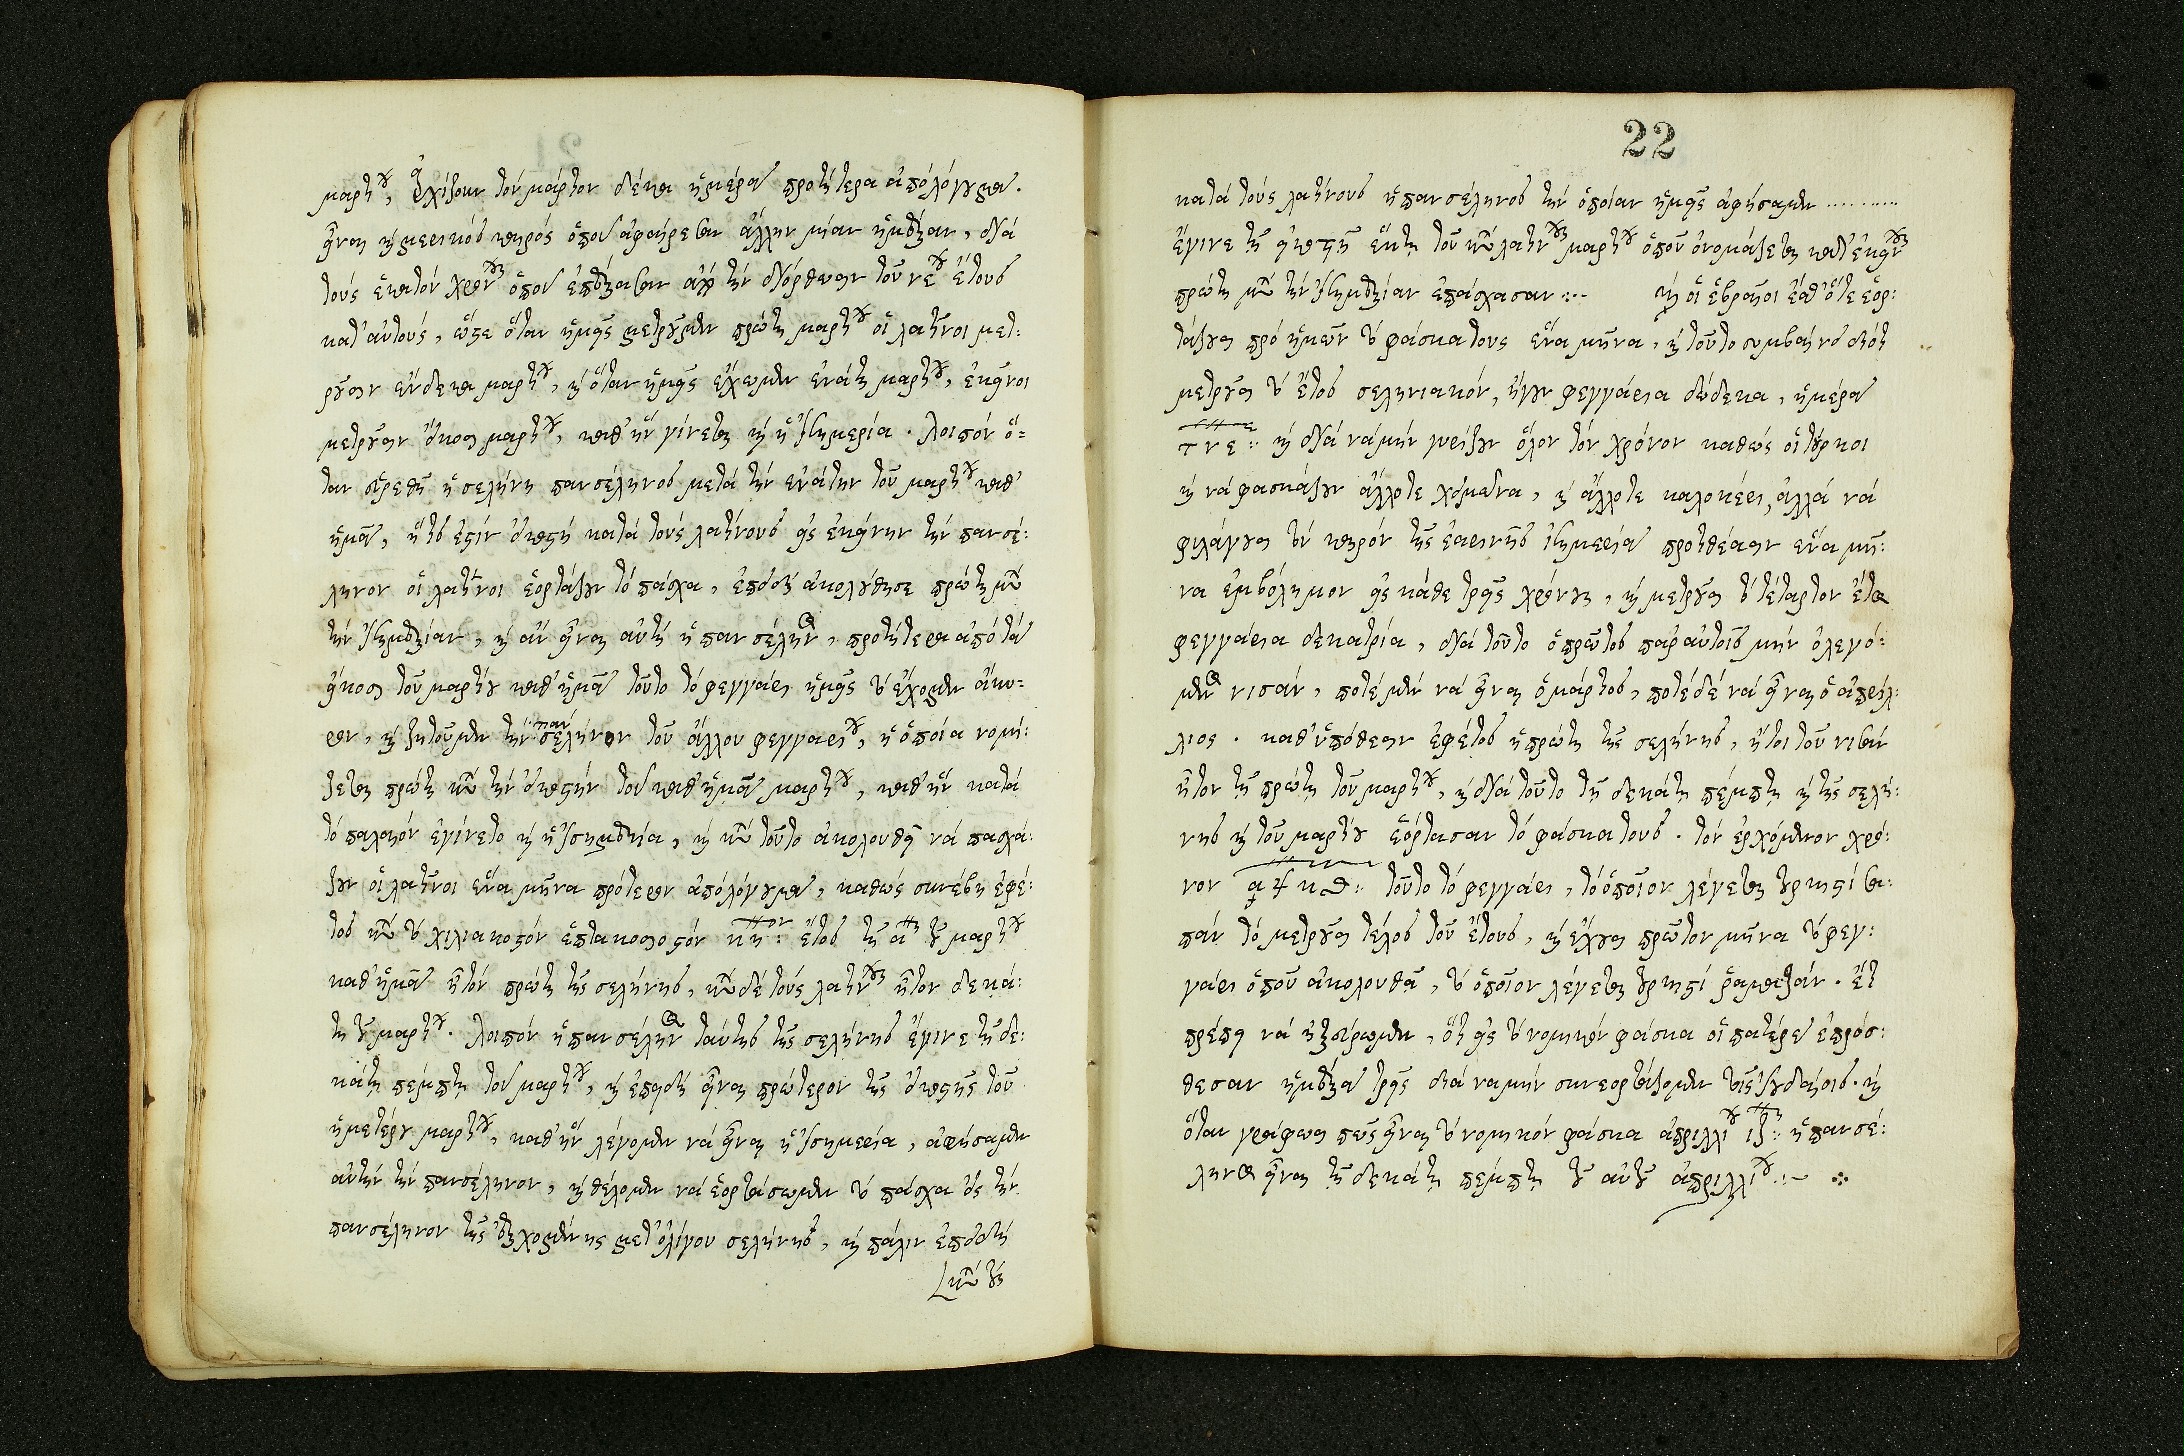 μαρτίου, ἀρχίζουν τὸν μάρτον δέκα ἡμέρας προτήτερα ἀπὸ λόγου μας.
εἶναι καὶ μερικὸς καιρὸς ὁποῦ ἀφαίρεσαν ἄλλην μίαν ἡμέραν, διὰ
τοὺς ἑκατὸν χρόνους ὁποῦ ἐπέρασαν ἀπὸ τὴν διόρθωσιν τοῦ νέου ἔτους
κατ' αὐτοὺς, ὥστε ὅταν ἡμεῖς μετροῦμεν πρώτη μαρτίου οἱ λατῖνοι μετ:
ροῦσιν ἕνδεκα μαρτίου, καὶ ὅταν ἡμεῖς ἔχωμεν ἐνάτη μαρτίου, ἐκεῖνοι
μετροῦσιν εἴκοσι μαρτίου, καθ' ἣν γίνεται καὶ ἡ ἰσημερία. λοιπὸν ὅ=
ταν εὑρεθῇ ἡ σελήνη πανσέληνος μετὰ τὴν ἐνάτην τοῦ μαρτίου καθ'
ἡμᾶς, ἥτις ἐστὶν εἰκοστὴ κατὰ τοὺς λατίνους εἰς ἐκείνην τὴν πανσέ:
ληνον οἱ λατῖνοι ἑορτάζουν τὸ πάσχα, ἐπειδὴ ἀκολούθησε πρώτη μετὰ
τὴν ἰσημερίαν, καὶ ἂν εἶναι αὐτὴ ἡ πανσέληνος, προτήτερα ἀπὸ τὰ
εἴκοσι τοῦ μαρτίου καθ' ἡμᾶς τοῦτο τὸ φεγγάρι ἡμεῖς τὸ ἔχομεν ἄκυ=
ρον, καὶ ζητοῦμεν τὴν πανσέληνον τοῦ ἄλλου φεγγαρίου, ἡ ὁποία νομί:
ζεται πρώτη μετὰ τὴν εἰκοστὴν τοῦ καθ' ἡμᾶς μαρτίου, καθ' ἣν κατὰ
τὸ παλαιὸν ἐγίνετο καὶ ἡ ἰσημερία, καὶ μετὰ τοῦτο ἀκολουθεῖ νὰ πασχά:
ζουν οἱ λατῖνοι ἕνα μῆνα πρότερον ἀπὸ λόγου μας, καθὼς συνέβη ἐφέ:
τος κατὰ τὸ χιλιακοστὸν ἑπτακοσιοστὸν κη: ἔτος τῇ αῃ τοῦ μαρτίου
καθ' ἡμᾶς ἦτον πρώτη τῆς σελήνης, κατὰ δὲ τοὺς λατίνους ἦτον δεκά:
τη τοῦ μαρτίου. λοιπὸν ἡ πανσέληνος ταύτης τῆς σελήνης ἔγινε τῇ δε:
κάτῃ πέμπτῃ τοῦ μαρτίου, καὶ ἐπειδὴ εἶναι πρώτερον τῆς εἰκοστῆς τοῦ
ἡμετέρου μαρτίου, καθ' ἣν λέγομεν νὰ εἶναι ἡ ἰσημερία, ἀφήσαμεν
αὐτὴν τὴν πανσέληνον, καὶ θέλομεν νὰ ἑορτάσωμεν τὸ πάσχα εἰς τὴν
πανσέληνον τῆς ἐρχομένης μετ' ὀλίγον σελήνης, καὶ πάλιν ἐπειδὴ
κατὰ τοὺς
22
κατὰ τοὺς λατίνους ἡ πανσέληνος τὴν ὁποίαν ἡμεῖς ἀφήσαμεν ..........
ἔγινε τῇ εἰκοστῇ ἕκτῃ τοῦ κατὰ λατίνους μαρτίου ὁποῦ ὀνομάζεται κατ' ἐκείνους
πρώτη μετὰ τὴν ἰσημερίαν ἐπάσχασαν :·- καὶ οἱ ἑβραῖοι ἔσθ' ὅτε ἑορ:
τάζουσι πρὸ ἡμῶν τὸ φάσκα τους ἕνα μῆνα, καὶ τοῦτο συμβαίνει διότι
μετροῦσι τὸ ἔτος σεληνιακὸν, ἤγουν φεγγάρια δώδεκα, ἡμέρας
τνε :· καὶ διὰ νὰ μὴν γυρίζουν ὅλον τὸν χρόνον καθὼς οἱ τοῦρκοι
καὶ νὰ φασκάζουν ἄλλοτε χειμῶνα, καὶ ἄλλοτε καλοκαίρι, ἀλλὰ νὰ
φυλάγουσι τὸν καιρὸν τῆς ἐαρινῆς ἰσημερίας προσθέασιν ἕνα μῆ:
να ἐμβόλημον εἰς κάθε τρεῖς χρόνους, καὶ μετροῦσι τὸ τέταρτον ἔτος
φεγγάρια δεκατρία, διὰ τοῦτο ὁ πρῶτος παρ' αὐτοῖς μὴν ὁ λεγό:
μενος νισάν, ποτὲ μὲν νὰ εἶναι ὁ μάρτιος, ποτὲ δὲ νὰ εἶναι ὁ ἀπρίλ:
λιος. καθ' ὑπόθεσιν ἐφέτος ἡ πρώτη τῆς σελήνης, ἤτοι τοῦ νισὰν
ἦτον τῇ πρώτῃ τοῦ μαρτίου, καὶ διὰ τοῦτο τῇ δεκάτῃ πέμπτῃ καὶ τῆς σελή:
νης καὶ τοῦ μαρτίου ἑόρτασαν τὸ φάσκα τους. τὸν ἐρχόμενον χρό:
νον αψκθ :· τοῦτο τὸ φεγγάρι, τὸ ὁποῖον λέγεται τουρκιστὶ σα:
πὰν τὸ μετροῦσι τέλος τοῦ ἔτους, καὶ ἔχουσι πρῶτον μῆνα τὸ φεγ:
γάρι ὁποῦ ἀκολουθᾷ, τὸ ὁποῖον λέγεται τουρκιστὶ ῥαμαζάν. ἔτι
πρέπει νὰ ἠξεύρωμεν, ὅτι εἰς τὸ νομικὸν φάσκα οἱ πατέρες ἐπρόσ:
θεσαν ἡμέρας τρεῖς διὰ νὰ μὴν συνεορτάζομεν τοῖς ἰουδαίοις. καὶ
ὅταν γράφωσι πῶς εἶναι τὸ νομικὸν φάσκα ἀπριλλίου ιζ :· ἡ πανσέ:
ληνος εἶναι τῇ δεκάτῃ πέμπτῃ τοῦ αὐτοῦ ἀπριλλίου :·-